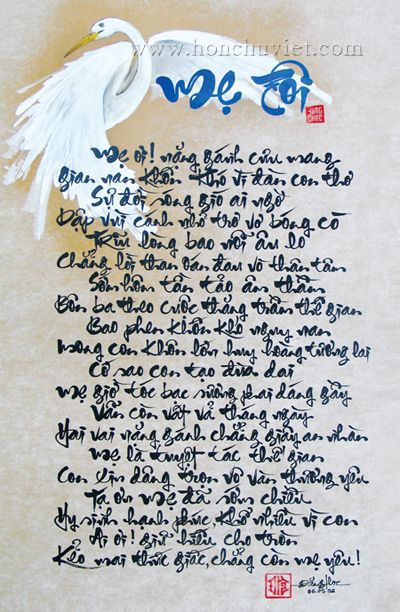 www.honchuviet.com
Mẹ tôi
Mẹ ơi! nặng gánh cưu mang
gian nan khốn khó vì đàn con thơ
Sự đời sóng gió ai ngờ
Dập vùi cánh nhỏ trơ vơ bóng cò
Trĩu lòng bao nỗi âu lo
Chẳng lời than oán đau vò thân tâm
Sớm hôm tần tảo âm thầm
Bôn ba theo cuộc thăng trầm thế gian
Bao phen khốn khó nguy nan
mong con khôn lớn huy hoàng tương lai
Cớ sao con tạo đưa dai
mẹ giờ tóc bạc sương phai dáng gầy
Vẫn còn vất vả tháng ngày
Hai vai nặng gánh chẳng giây an nhàn
mẹ là tuyệt tác thế gian
Con xin dâng trọn vô vàn thương yêu
Tạ ơn mẹ đã sớm chiều
Hy sinh hạnh phúc, khổ nhiều vì con
Ai ơi! giữ hiếu cho tròn
Kẻo mai thức giấc, chẳng còn mẹ yêu!